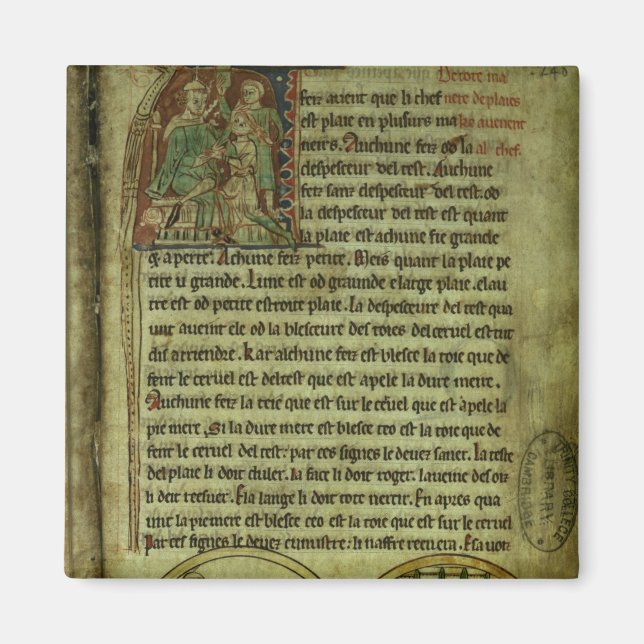 De tote ma
feiz avient que li chef nere de plaies
est plaie en plusurs ma ke avenent
neirs. Auchune feiz od la al chef.
despesceur del test. Auchune
feiz sanz despesceur del test. od
la despesceur del test est quant
la plaie est achune fie grande
q aperte. Achune feiz petite. Meis quant la plaie pe
tite u grande. Lune est od graunde e large plaie. e lau
tre est od petite estroite plaie. la despesceure del test qua
unt aveint ele od la blesceure des toies del cervel est tut
dis a
kar alchune feiz est blesce la toie que de
fent le cervel del test que est apele la dure mere.
Auchune feiz la toie que est sur le cervel que est apele la
pie mere. Si la dure mere est blesce ceo est la toie que de
fent le cervel del test: par ces signes le devez saver. la teste
del plaie li doit
la face li doit roger.
li doit
E la lange li doit tote nercir. En apres qua
unt la pie mere est blesce ceo est la toie que est sur le cervel
Par ces signes le devez
li naffre
E sa voiz
TRINITY COLLEGE
LIBRARY
CAMBRIDGE